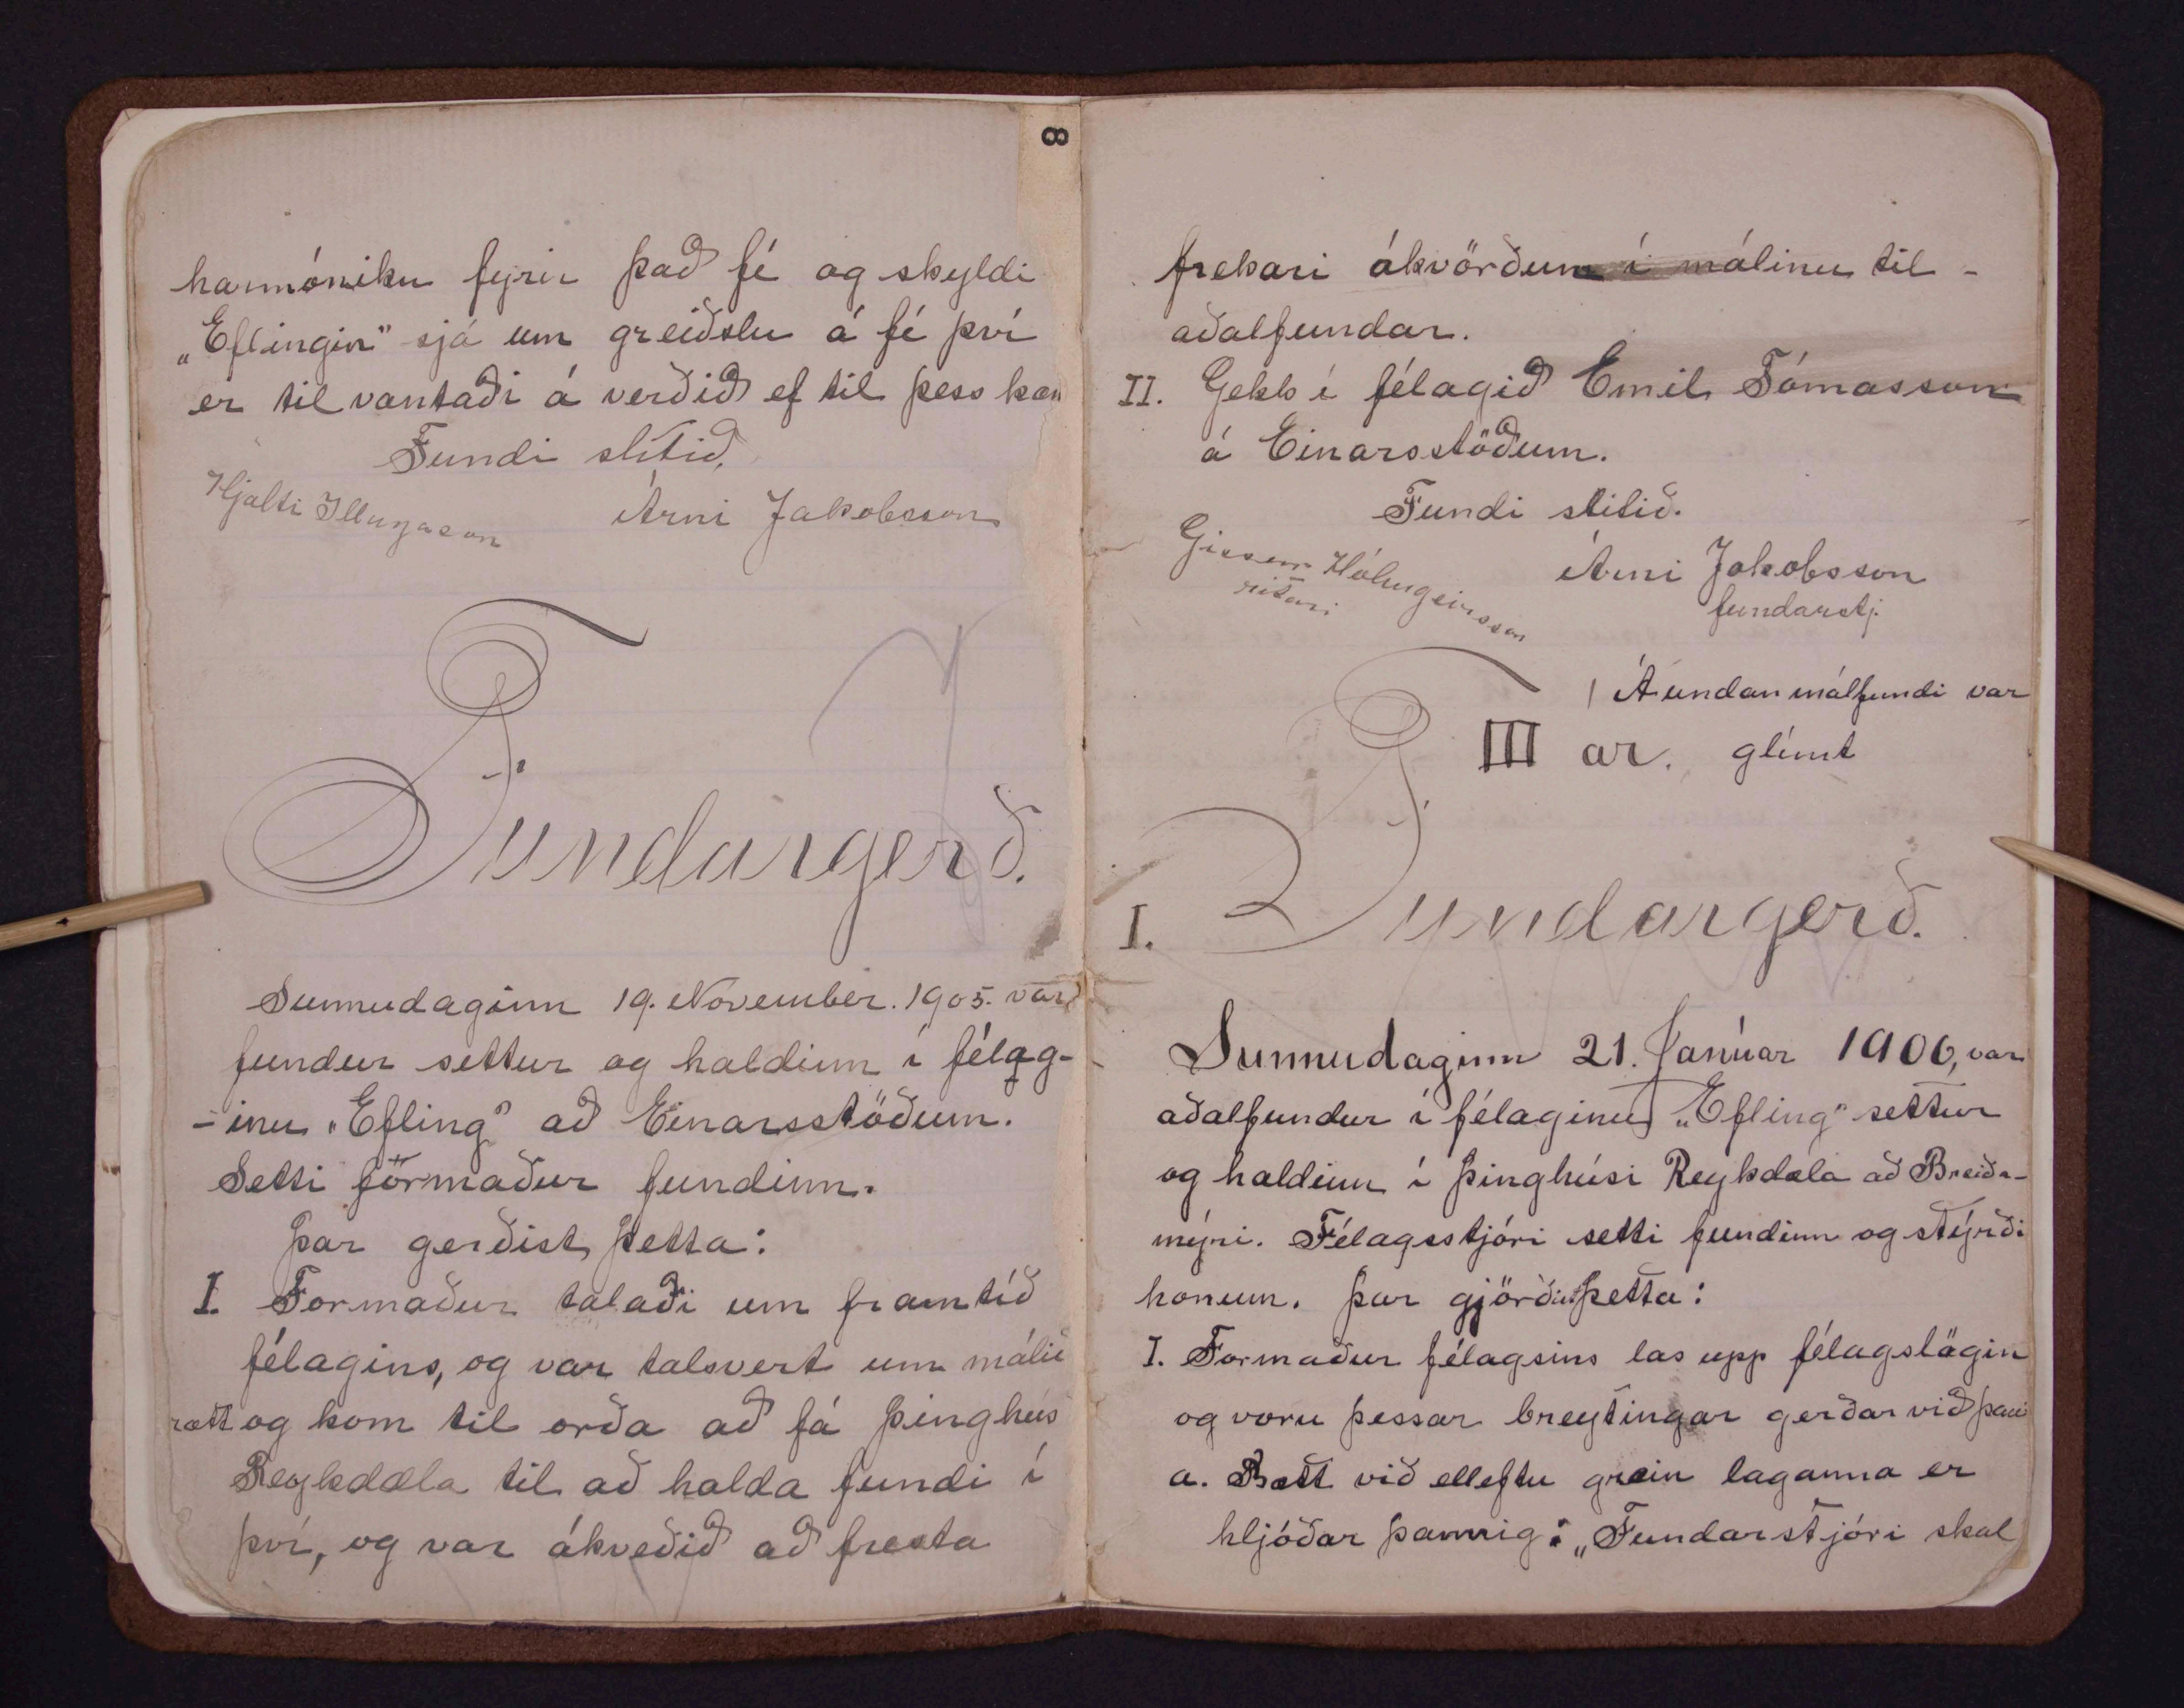 8
harmóniku fyrir það fé og skyldi
„Eflingin" sjá um greiðslu á fé því
er til vantaði á verðið ef til þess kæm
Fundi slitið.
Hjalti Illugason Árni Jakobsson
Fundargerð.
Sunnudaginn 19. Nóvember. 1905. var
fundur settur og haldinn í félag-
-inu „Efling" að Einarsstöðum.
Setti förmaður fundinn.
Þar gerðist þetta:
I. Formaður talaði um framtíð
félagins, og var talsvert um málið
rætt og kom til orða að fá þinghús
Reykdæla til að halda fundi í
því, og var ákveðið að fresta
frekari ákvörðum í málinu til -
aðalfundar.
II. Gekk í félagið Emil Tómasson
á Einarsstöðum.
Fundi slitið.
Gissur Hólmgeirsson
ritari
Árni Jakobsson
fundarstj.
Á undan málfundi var
III ar. glímt
I. Fundargerð.
Sunnudaginn 21. Janúar 1906, var
aðalfundur í félaginu „Efling" settur
og haldinn í þinghúsi Reykdæla að Breiðu-
mýri. Félagsstjóri setti fundinn og stýrði
honum. Þar gjörðist þetta:
I. Formaður félagsins las upp félagslögin
og voru þessar breytingar gerðar við þau
a. Bætt við elleftu grein laganna er
hljóðar þannig: „Fundarstjóri skal